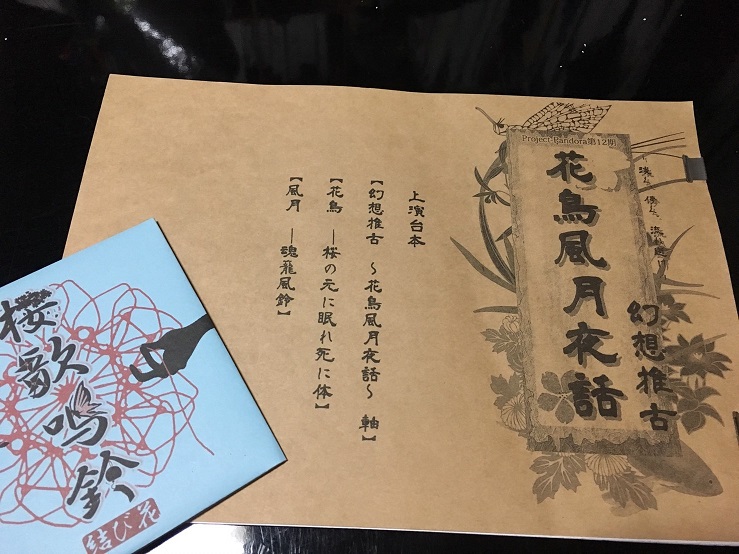 Project-Pandora第12期
幻想推古
花鳥風月夜話
上演台本
【幻想推古 ～花鳥風月夜話～ 軸】
【花鳥 ―桜の元に眠れ死に体】
【風月 ―魂龍風鈴】
桜歌鳴鈴
結び花